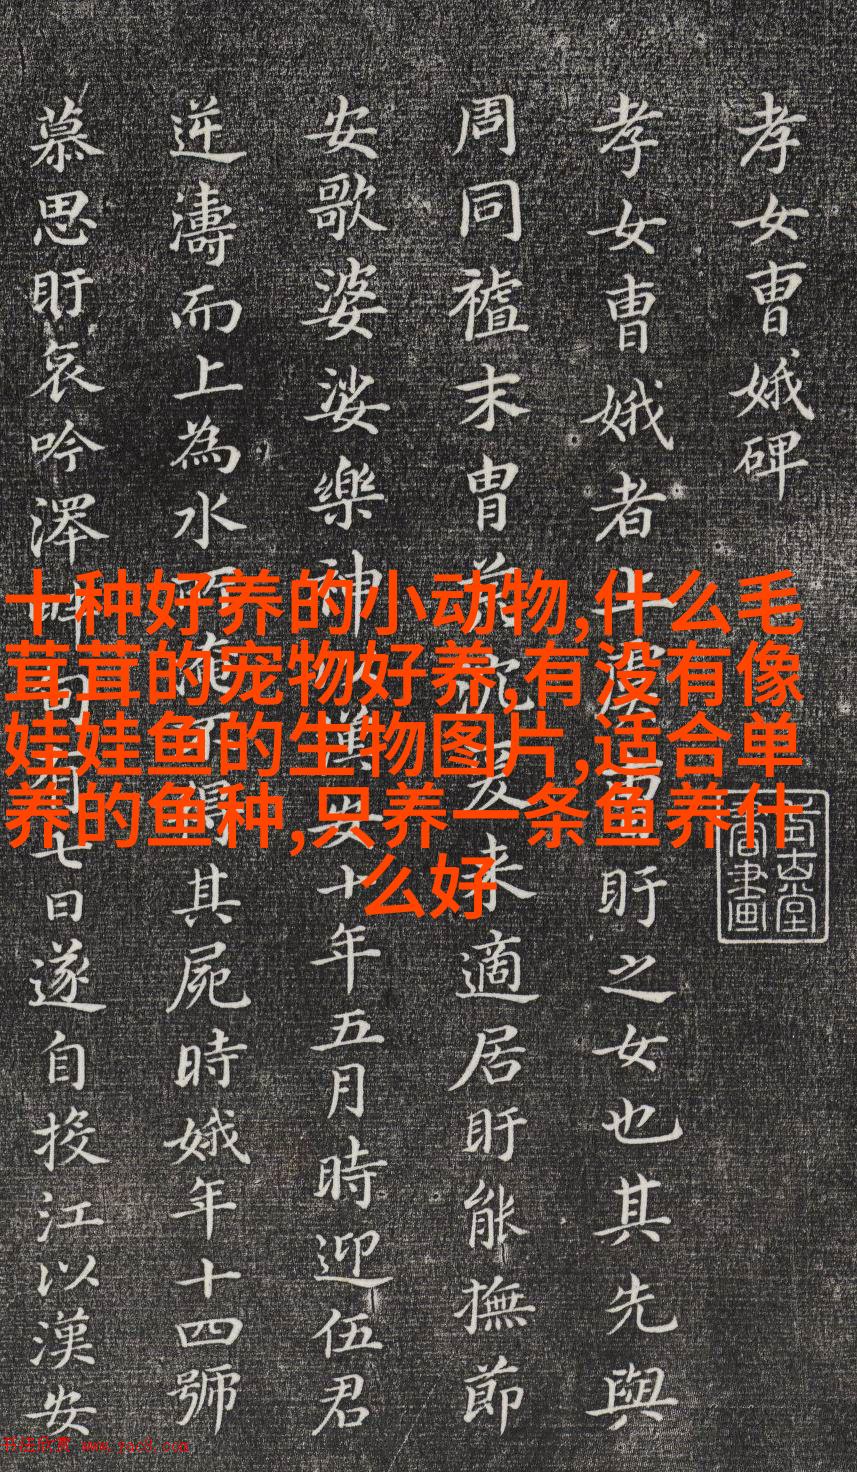 孝女曹娥碑
孝女曹娥者上虞曹盱之女也其先與
周同禮末胄荒沉爰来適居盱能撫節
安歌婆娑樂神以漢安十年五月時迎伍君
逆濤而上為水所淹不得其屍時娥年十四號
慕思盱哀吟澤畔旬有七日遂自投江以漢安
十种好养的小动物,什么毛
茸茸的宠物好养,有没有像
娃娃鱼的生物图片,适合单
养的鱼种,只养一条鱼养什
么好
书法欣赏 www.rac8.com